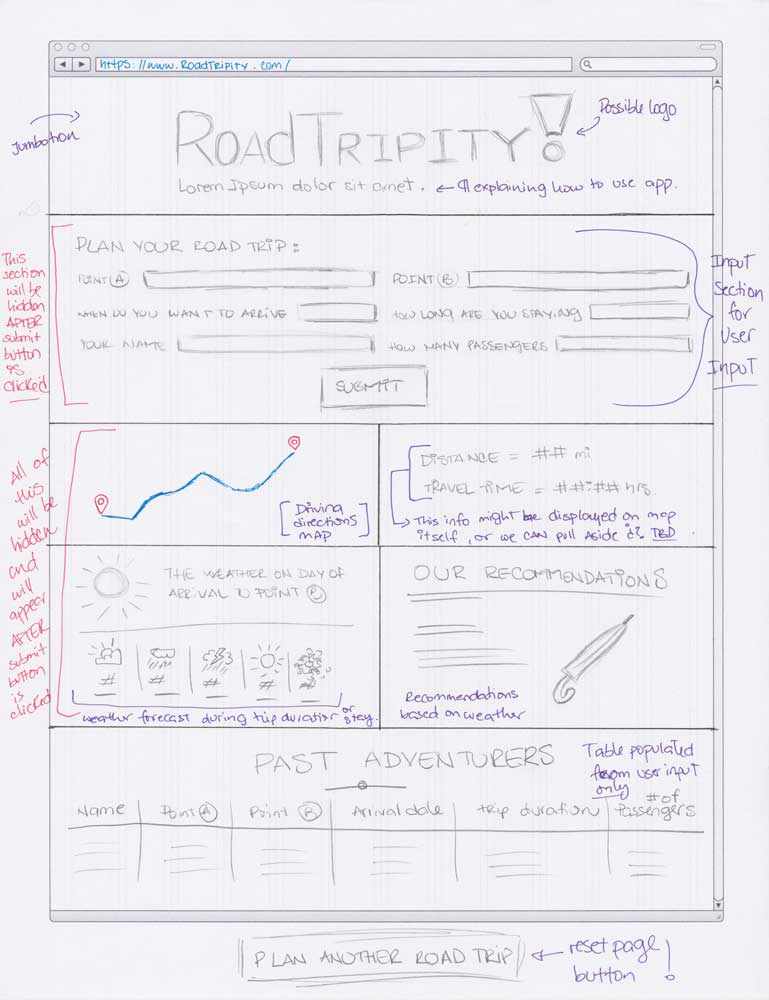 https://www.RoadTripity.com/
Jumbotron
RoadTripity!
Possible logo
Lorem Ipsum dolor sit amet. ← ¶ explaining how to use app.
This
section
will be
hidden
AFTER
submit
button
is
clicked
PLAN YOUR ROAD TRIP:
POINT (A)
POINT (B)
WHEN DO YOU WANT TO ARRIVE
HOW LONG ARE YOU STAYING
YOUR NAME
HOW MANY PASSENGERS
SUBMIT
Input
Section
for
User
Input
All of
this
will be
hidden
and
will
appear
AFTER
submit
button
is
clicked
Driving
directions
MAP
DISTANCE = ## mi
TRAVEL TIME = ##:## hrs.
This info might be displayed on map
itself, or we can pull aside it? TBD.
THE WEATHER ON DAY OF
ARRIVAL TO POINT (B)
# # # # #
weather forecast during trip duration or stay.
OUR RECOMMENDATIONS
Recommendations
based on weather
PAST ADVENTURERS
Table populated
from user input
only
Name Point (A) Point (B) Arrival date trip duration # of Passengers
PLAN ANOTHER ROAD TRIP
reset page
button !